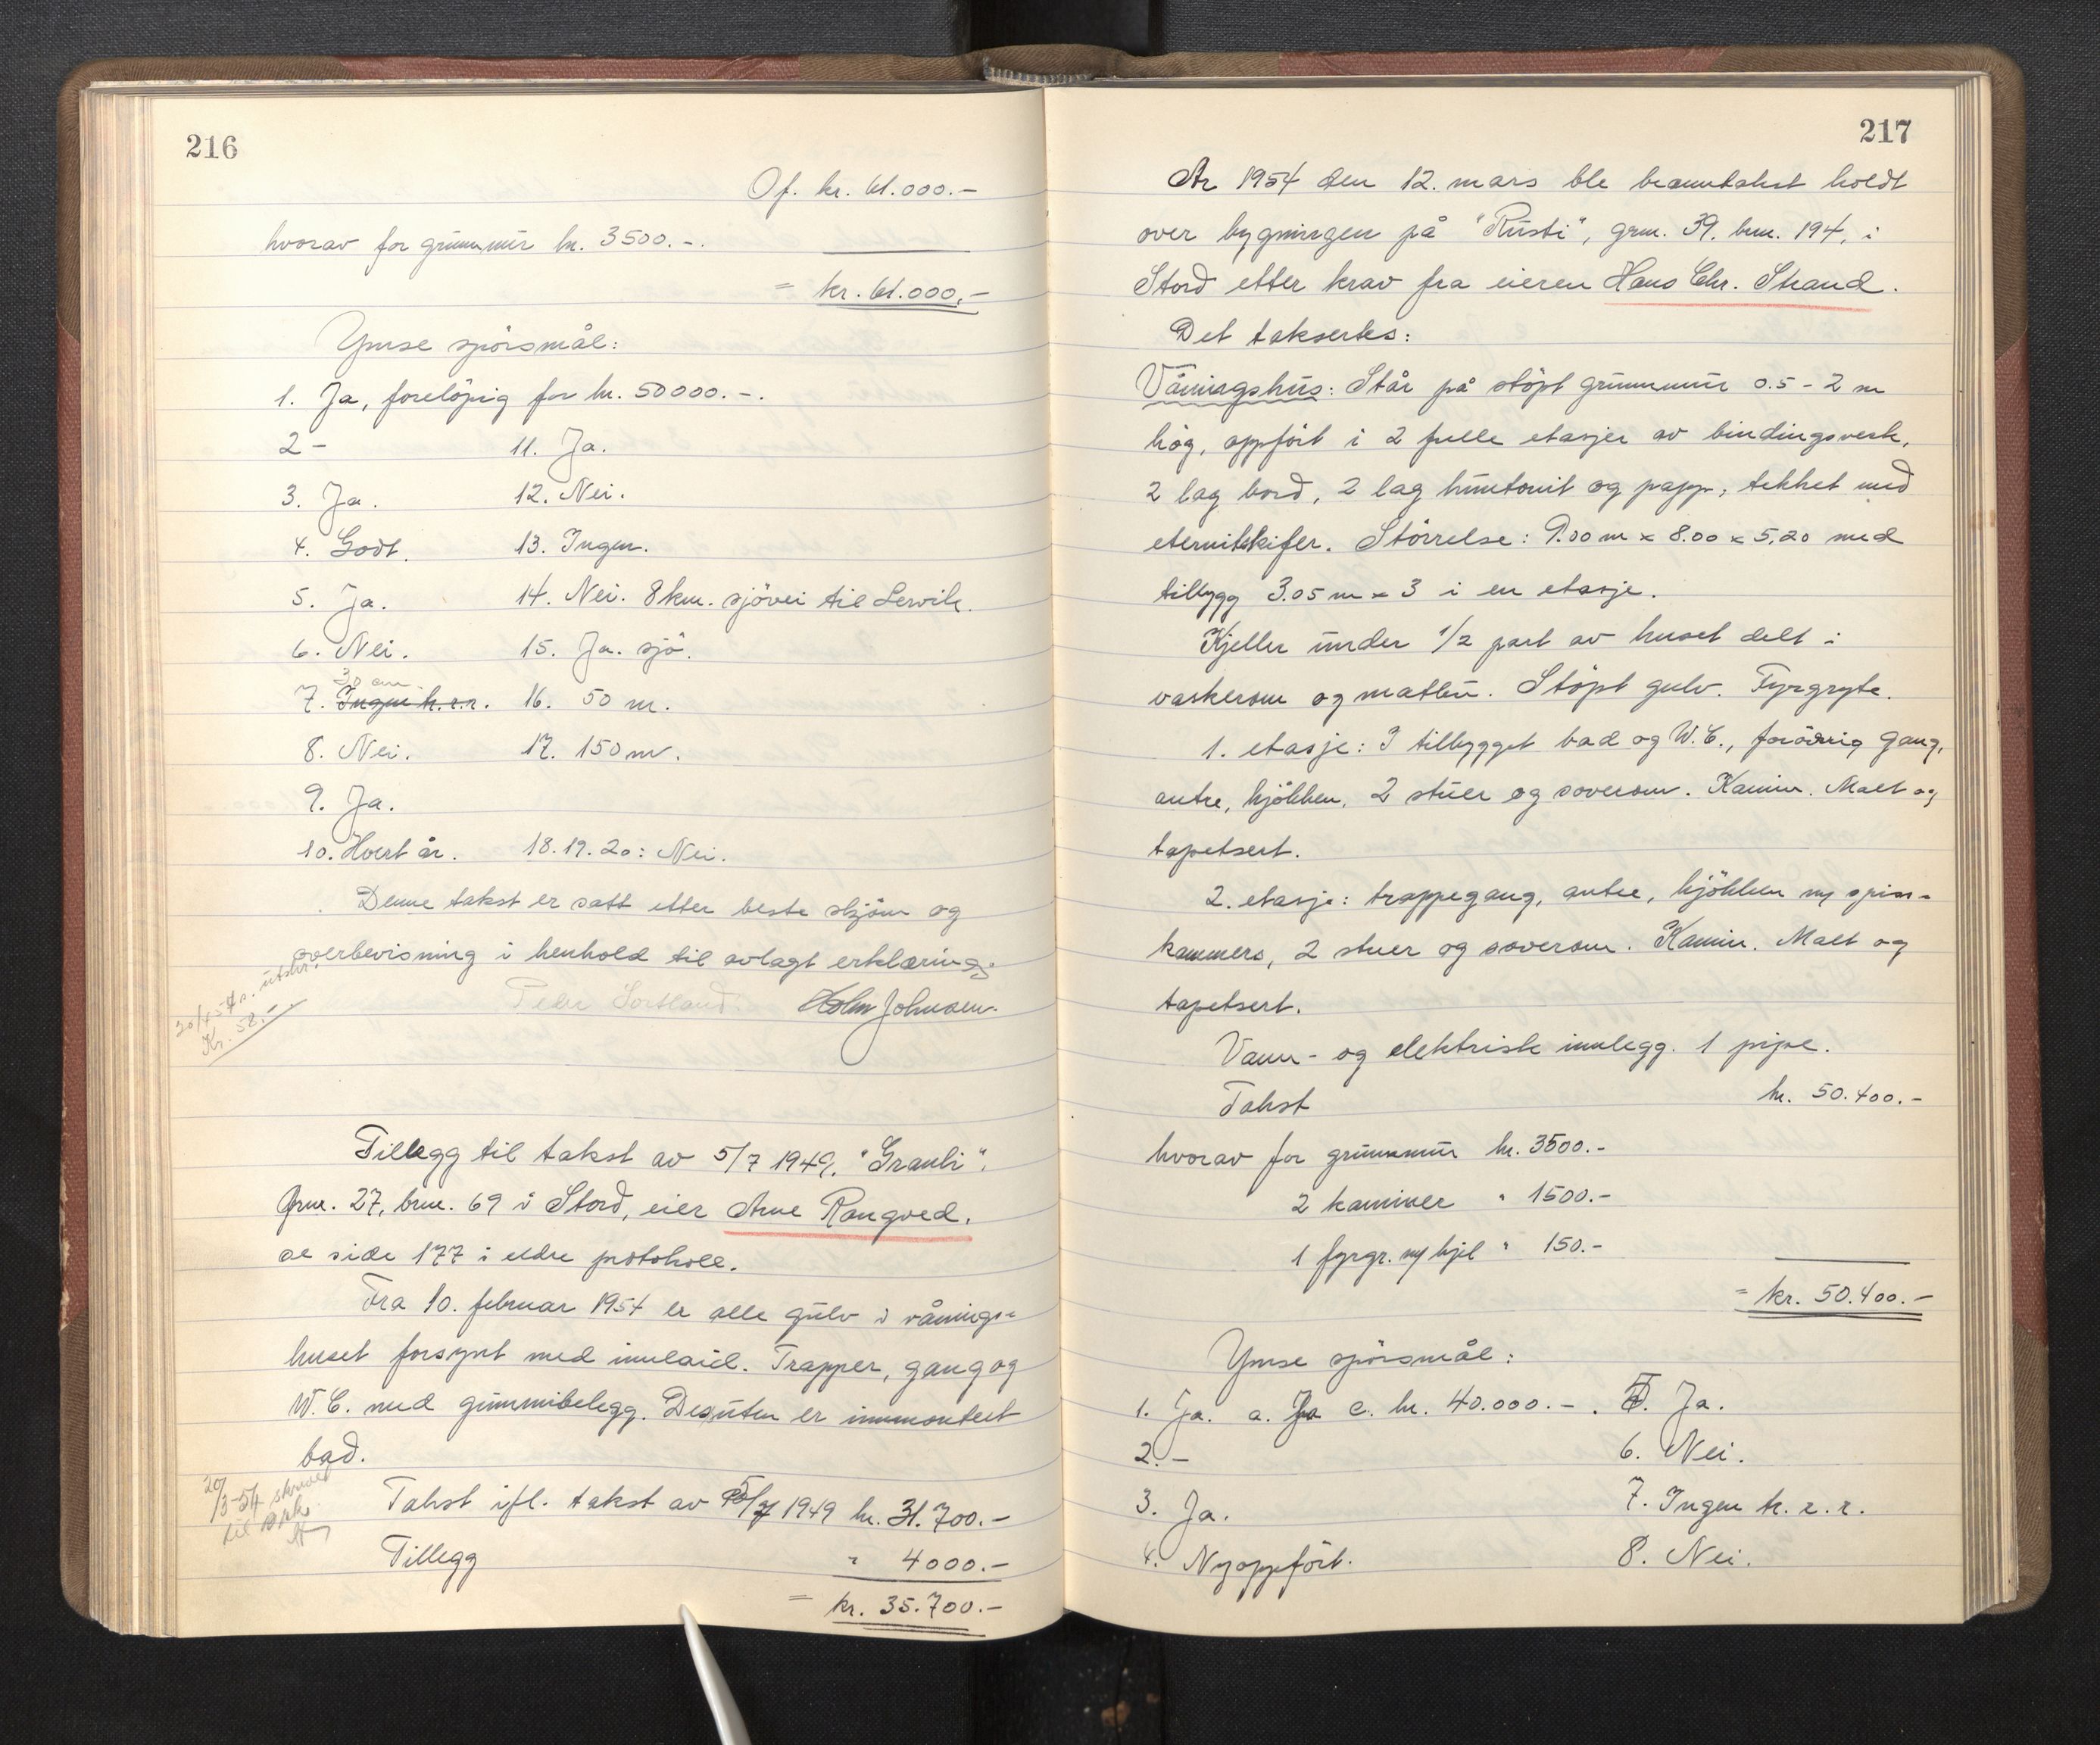 216
Of. kr. 61.000.-
hvorav for grunnmur kr. 3500.-.
= kr. 61.000,-
Ymse spörsmål:
1. Ja, forelöpig for kr. 50000.-.
2 - 11. Ja.
3. Ja. 12. Nei.
4. Godt. 13. Ingen.
5. Ja. 14. Nei. 8 km. sjövei til Lervik.
6. Nei. 15. Ja. sjö.
30 cm
7. Ingen k.r.r. 16. 50 m.
8. Nei. 17. 150 m.
9. Ja.
10. Hvert år. 18.19.20: Nei.
Denne takst er satt etter beste skjönn og
overbevisning i henhold til avlagt erklæring.
Peder Sortland. Holm Johnsen.
utskr.
Kr. 58.-
Tillegg til takst av 5/7 1949, "Granli".
Grnr. 27, bnr. 69 i Stord, eier Arne Rangved.
se side 177 i eldre protokoll.
Fra 10. februar 1954 er alle gulv i vånings-
huset forsynt med innlaid. Trapper, gang og
W.C. med gummibelegg. Desuten er innmontert
bad.
20/3-54 skrevet
til
Takst ifl. takst av 5/7 1949 kr. 31.700.-
Tillegg " 4000.-
= kr. 35.700.-
217
År 1954 den 12. mars ble branntakst holdt
over bygningen på "Rusti", grnr. 39. bnr. 194, i
Stord etter krav fra eieren Hans Chr. Strand.
Det taksertes:
Våningshus: Står på stöpt grunnmur 0.5 - 2 m
hög, oppfört i 2 fulle etasjer av bindingsverk,
2 lag bord, 2 lag huntonit og papp, tekket med
eternitskifer. Störrelse: 9.00 m x 8.00 x 5,20 med
tilbygg 3.05 m x 3 i en etasje.
Kjeller under 1/2 part av huset delt i
vaskerom og matbu. Stöpt gulv. Fyrgryte.
1. etasje: I tilbygget bad og W.C., forövrig gang,
entre, kjökken, 2 stuer og soverom. Kamin. Malt og
tapetsert.
2. etasje: trappegang, entre, kjökken m/ spis-
kammers, 2 stuer og soverom. Kamin. Malt og
tapetsert.
Vann- og elektrisk innlegg. 1 pipe.
Takst kr. 50.400.-
hvorav for grunnmur kr. 3500.-
2 kaminer " 1500.-
1 fyrgr. m/ kjel " 150.-
= kr. 50.400.-
Ymse spörsmål:
1. Ja. a. Ja c. kr. 40.000.-. 5. Ja.
2. - 6. Nei.
3. Ja. 7. Ingen k.r.r.
4. Nyoppfört. 8. Nei.